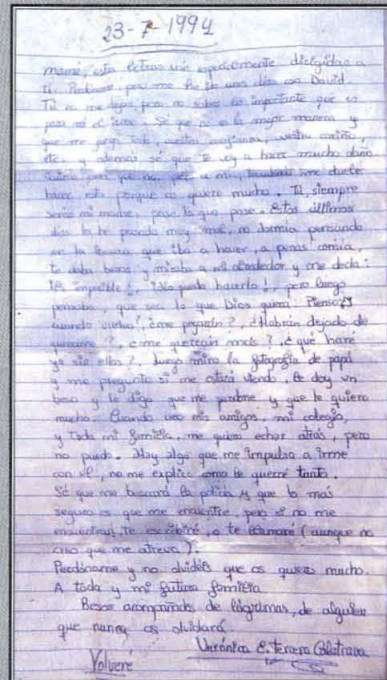 23-7-1994
mamá, estas letras van especialmente dirigidas a
ti. Perdóname pero me he ido unos días con David.
Tú no me dejas, pero no sabes lo importante que es
para mí el irme. Sé que no es la mejor manera y
que me juego todo, vuestra confianza, vuestro cariño,
etc. y además sé que te voy a hacer mucho daño
pero a mí, también me duele
hacer esto porque os quiero mucho. Tú, siempre
serás mi madre, pase lo que pase. Estos últimos
días lo he pasado muy mal, no dormía pensando
en la locura que iba a hacer, a penas comía,
te daba besos y miraba a mi alrededor y me decía:
¡Es imposible!, ¡No puedo hacerlo!, pero luego
pensaba, que sea lo que Dios quiera. Pienso
cuando vuelva, ¿me pegarán?, ¿Habrán dejado de
quererme?, ¿me querrán más?, ¿qué haré
yo sin ellos?, luego miro la fotografía de papá
y me pregunto si me estará viendo, le doy un
beso y le digo que me perdone y que le quiero
mucho. Cuando veo mis amigos, mi colegio,
y toda mi familia, me quiero echar atrás, pero
no puedo. Hay algo que me impulsa a irme
con él, no me explico como le querré tanto.
Sé que me buscará la policía y que lo más
seguro es que me encuentre, pero si no me
encuentran, te escribiré, o te llamaré (aunque no
creo que me atreva).
Perdóname y no olvidéis que os quiero mucho.
A toda y mi futura familia
Besos acompañados de lágrimas, de alguien
que nunca os olvidará
Verónica E. Tercero Calatrava
Volveré